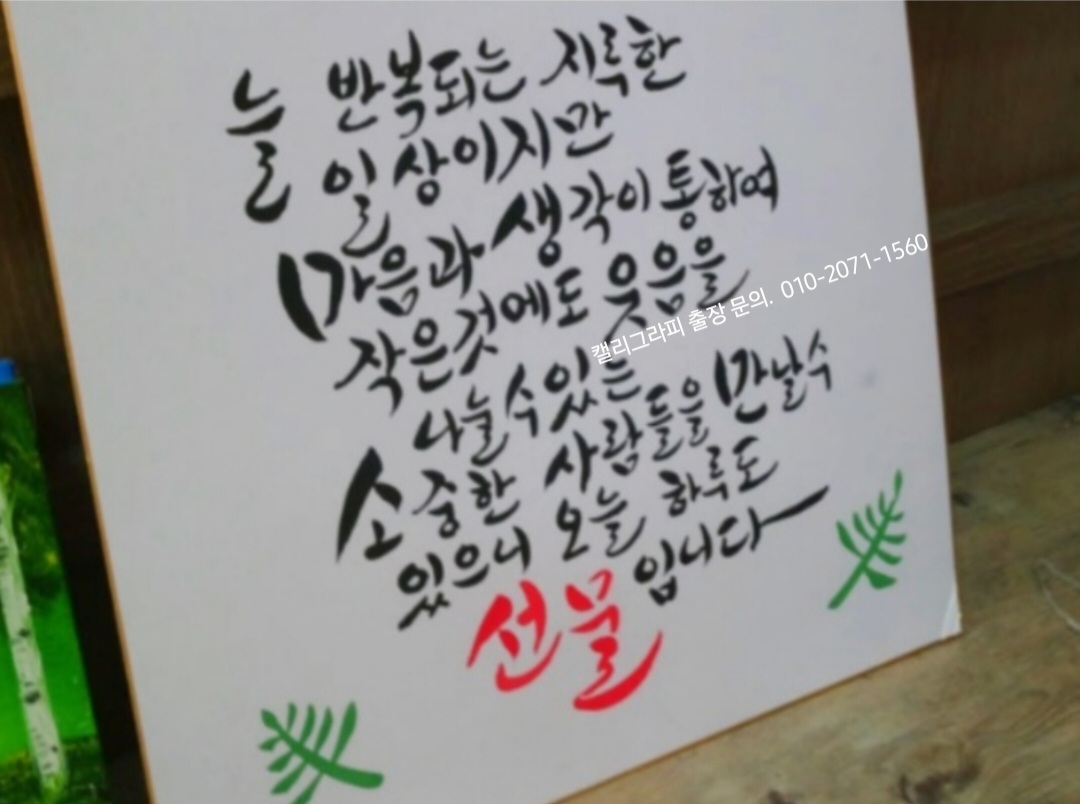 늘 반복되는 지루한
일상이지만
마음과 생각이 통하여
작은것에도 웃음을
나눌수있는
소중한 사람들을 만날수
있으니 오늘 하루도
선물 입니다
캘리그라피 출장 문의. 010-2071-1560